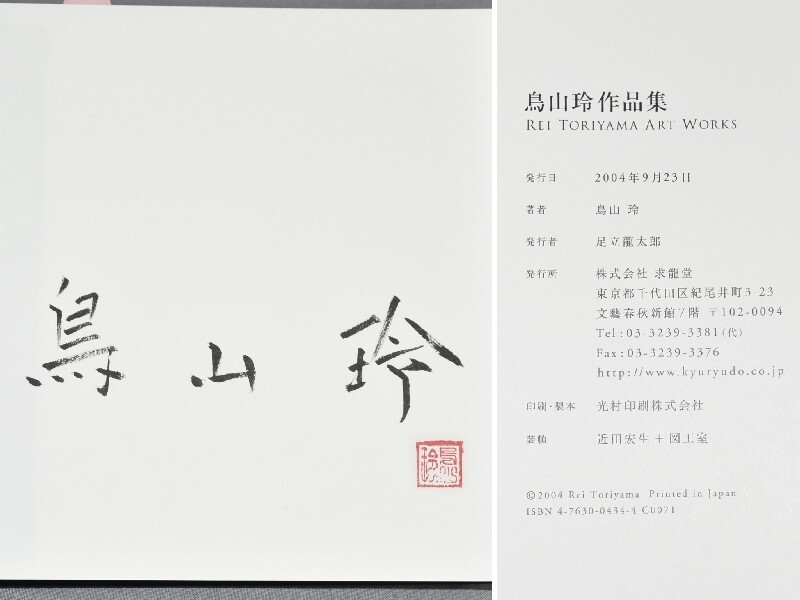 鳥山玲
鳥山玲
鳥山玲作品集
REI TORIYAMA ART WORKS
発行日 2004年9月23日
著者 鳥山 玲
発行者 足立龍太郎
発行所 株式会社 求龍堂
東京都千代田区紀尾井町3-23
文藝春秋新館7階 〒102-0094
Tel:03-3239-3381(代)
Fax:03-3239-3376
http://www.kyuryudo.co.jp
印刷・製本 光村印刷株式会社
装幀 近田宏生+図工室
©2004 Rei Toriyama Printed in Japan
ISBN 4-7630-0434-4 C0071